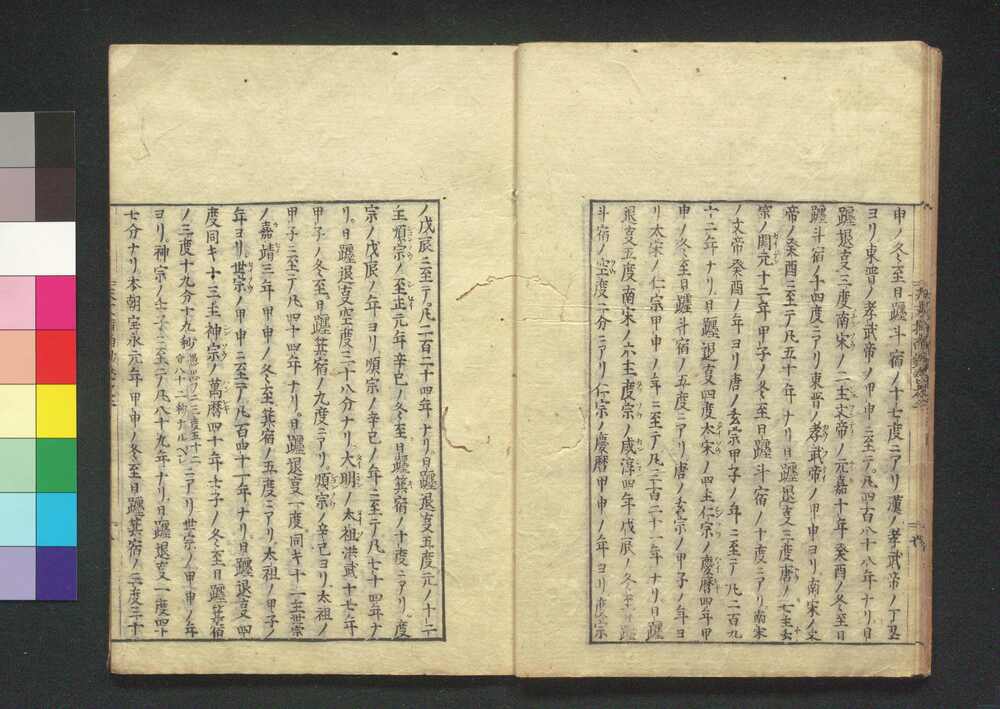 申ノ冬至日躔斗宿ノ十七度ニアリ漢ノ孝武帝ノ丁丑
ヨリ東晋ノ孝武帝ノ甲申ニ至テ凡四百八十八年ナリ日
躔退夏三度南宋ノ二主文帝ノ元嘉十年癸酉ノ冬至日
躔斗宿ノ十四度ニアリ東晋ノ孝武帝ノ甲申ヨリ南宋ノ文
帝ノ癸酉ニ至テ凡五十年ナリ日躔退夏三度唐ノ七主玄
宗ノ開元十二年甲子ノ冬至日躔斗宿ノ十度ニアリ南宋
ノ文帝癸酉ノ年ヨリ唐ノ玄宗甲子ノ年ニ至テ凡二百九
十二年ナリ日躔退夏四度太宋ノ四主仁宗ノ慶暦四年甲
申ノ冬至日躔斗宿ノ五度ニアリ唐ノ玄宗ノ甲子ノ年ヨ
リ太宋ノ仁宗甲申ノ年ニ至テ凡三百二十一年ナリ日躔
退夏五度南宋ノ六主度宗ノ咸淳四年戊辰ノ冬至日躔
斗宿ノ空度二分ニアリ仁宗ノ慶暦甲申ノ年ヨリ度宗
ノ戊辰ニ至テ凡二百二十四年ナリ日躔退夏五度元ノ十二
主順宗ノ至正元年辛巳ノ冬至日躔箕宿ノ十度ニアリ度
宗ノ戊辰ノ年ヨリ順宗ノ辛巳ノ年ニ至テ凡七十四年ナ
リ日躔退夏空度二十八分ナリ大明ノ太祖洪武十七年
甲子ノ冬至日躔箕宿ノ九度ニアリ順宗ノ辛巳ヨリ太祖ノ
甲子ニ至テ凡四十四年ナリ日躔退夏一度同キ十一主世宗
ノ嘉靖三年甲申ノ冬至箕宿ノ五度ニアリ太祖ノ甲子ノ
年ヨリ世宗ノ甲申ニ至テ凡百四十一年ナリ日躔退夏四
度同キ十三主神宗ノ萬暦四十年壬子ノ冬至日躔箕宿
ノ三度十九分十九秒ニアリ世宗ノ甲申ノ年
ヨリ神宗ノ壬子ニ至テ凡八十九年ナリ日躔退夏一度四十
七分ナリ本朝宝永元年甲申ノ冬至日躔箕宿ノ三度三十